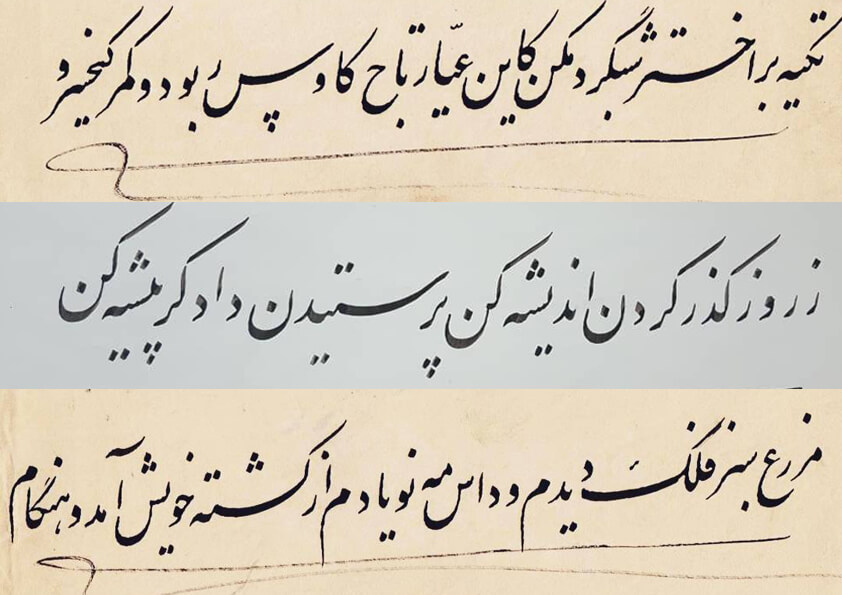 تکیه بر اختر شبگرد مکن کاین عیّار تاج کاوس ربود و کمر کیخسرو
ز روز گذر کردن اندیشه کن پرستیدن دادگر پیشه کن
مزرع سبز فلک دیدم و داس مه نو یادم از کشته خویش آمد و هنگام